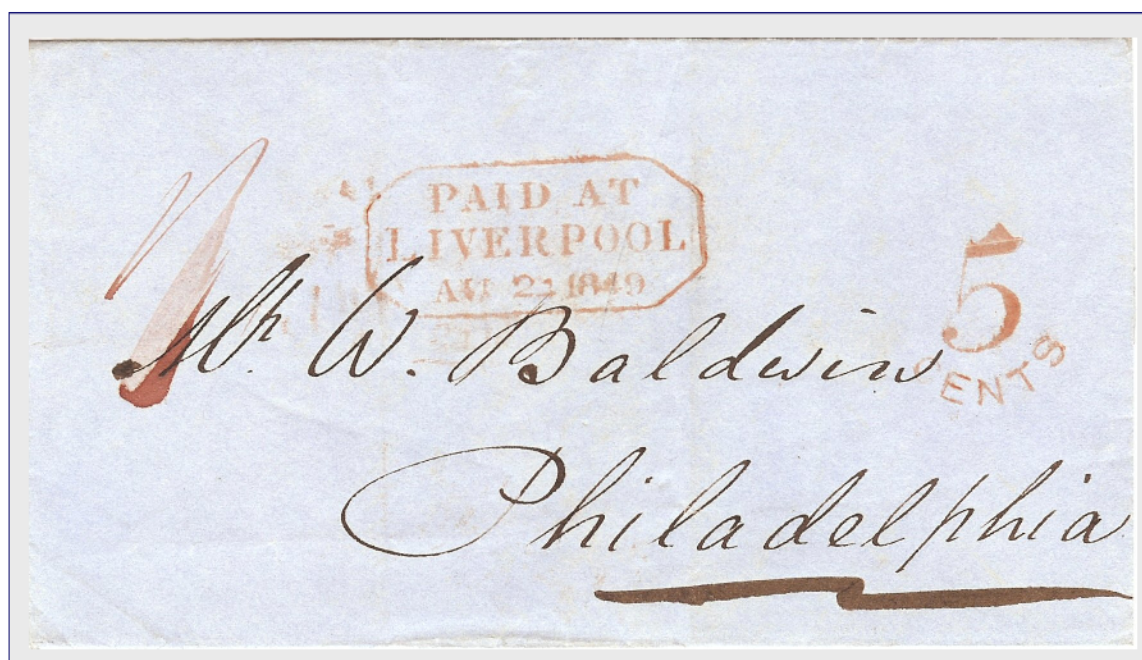 PAID AT
LIVERPOOL
2 1849
5
CENTS
Mr. W. Baldwin
Philadelphia